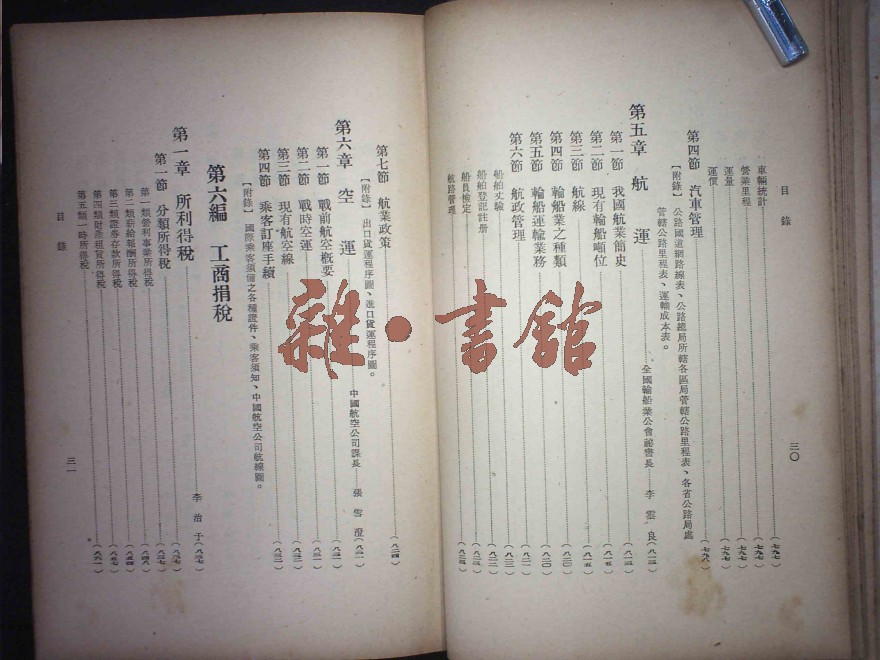 目錄
三〇
車輛統計 (七九七)
營業里程 (七九七)
運量 (七九七)
運價 (七九七)
第四節 汽車管理 (七九八)
〔附錄〕 公路國道網路線表、公路總局所轄各區局管轄公路里程表、各省公路局處
管轄公路里程表、運輸成本表。
第五章 航運 全國輪船業公會祕書長 李雲良
第一節 我國航業簡史
第二節 現有輪船噸位
第三節 航線
第四節 輪船業之種類
第五節 輪船運輸業務
第六節 航政管理
船舶丈驗
船舶登記註冊
船員檢定
航路管理
第七節 航業政策 (八二四)
〔附錄〕 出口貨運程序圖、進口貨運程序圖。
第六章 空運 中國航空公司課長 張雪澄
第一節 戰前航空概要
第二節 戰時空運
第三節 現有航空線
第四節 乘客訂座手續
〔附錄〕 國際乘客須備之各種證件、乘客須知、中國航空公司航線圖。
第六編 工商捐稅
第一章 所利得稅 李治于 (八三七)
第一節 分類所得稅 (八三七)
第一類營利事業所得稅
第二類薪給報酬所得稅
第三類證券存款所得稅
第四類財產租賃所得稅
第五類一時所得稅
目錄
三一
雜·書館